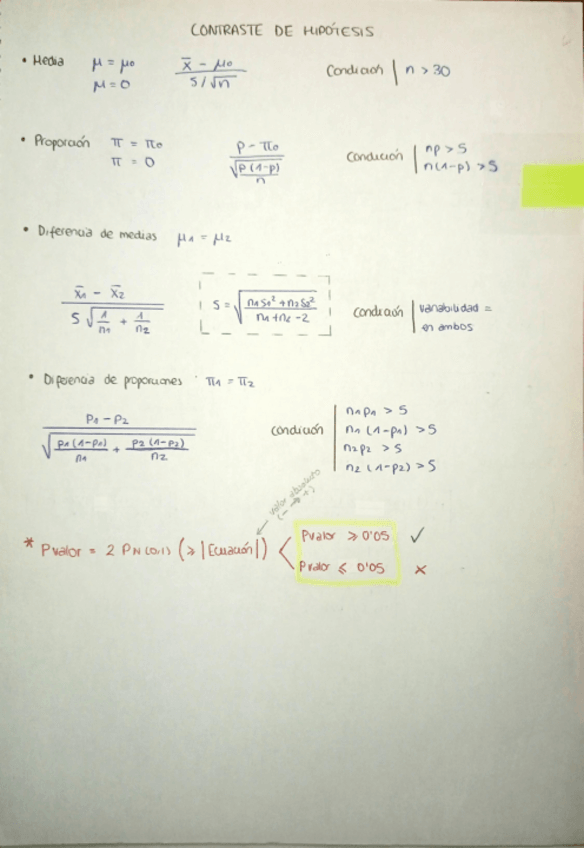 CONTRASTE DE HIPÓTESIS
• Media μ = μ0 (x̄ - μ0) / (s/√n) Condición | n > 30
μ = 0
• Proporción π = π0 (p - π0) / √(p(1-p)/n) Condición | np > 5
π = 0 n(1-p) > 5
• Diferencia de medias μ1 = μ2
(x̄1 - x̄2) / (S √(1/n1 + 1/n2)) S = √((n1S1² + n2S2²) / (n1 + n2 - 2)) Condición | variabilidad =
en ambos
• Diferencia de proporciones π1 = π2
(p1 - p2) / √(p1(1-p1)/n1 + p2(1-p2)/n2) Condición | n1p1 > 5
n1(1-p1) > 5
n2p2 > 5
n2(1-p2) > 5
valor absoluto
(- → +)
* Pvalor = 2 PN(0,1) (≥ |Ecuación|) < Pvalor ≥ 0'05 ✓
Pvalor ≤ 0'05 ×